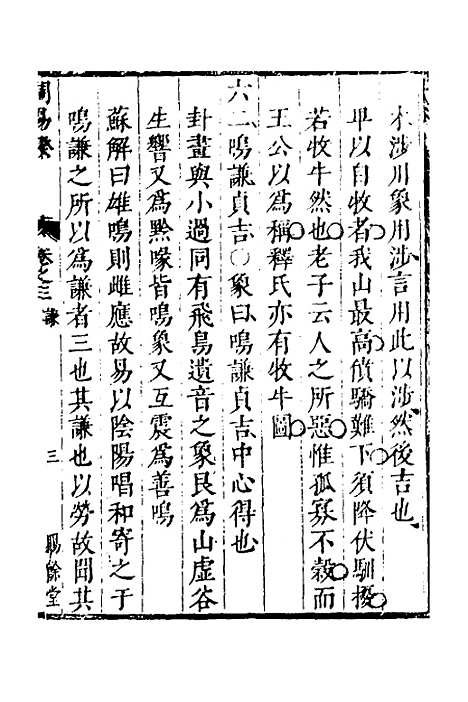 木涉川象用涉言用此以涉然後吉也
卑以自牧者我山最高僨驕難下須降伏馴擾
若牧牛然也老子云人之所惡惟孤寡不穀而
王公以為稱釋氏亦有牧牛圖
六二鳴謙貞吉○象曰鳴謙貞吉中心得也
卦畫與小過同有飛鳥遺音之象艮為山虛谷
生響又為黔喙皆鳴象又互震為善鳴
蘇解曰雄鳴則雌應故易以陰陽唱和寄之于
鳴謙之所以為謙者三也其謙也以勞故聞其
周易
卷之三 謙
三
賜餘堂